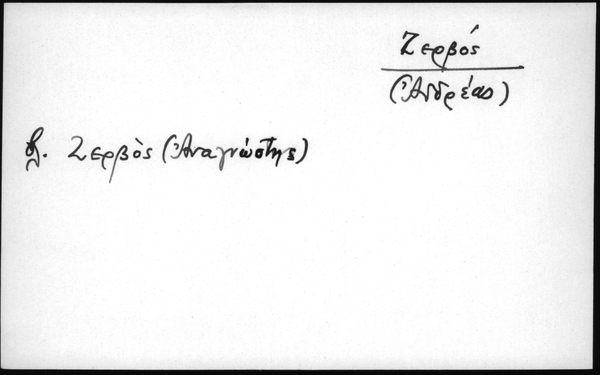 Ζερβός
(Ἀνδρέας)
βλ. Ζερβὸς (Ἀναγνώστης)